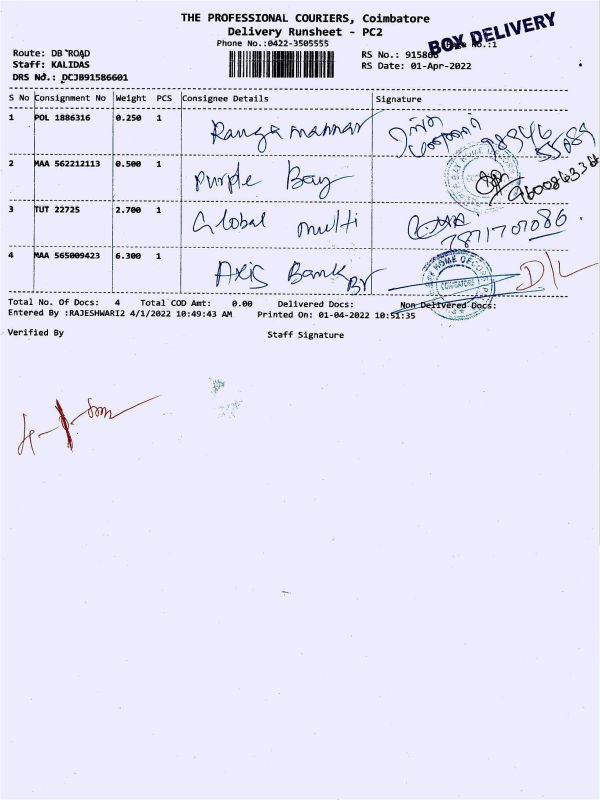 THE PROFESSIONAL COURIERS, Coimbatore
Delivery Runsheet - PC2
BOX DELIVERY
Phone No.:0422-3505555
Route: DB ROAD
RS No.: 915866
Staff: KALIDAS
RS Date: 01-Apr-2022
DRS No.: DCJB91586601
S No Consignment No Weight PCS Consignee Details Signature
1 POL 1886316 0.250 1 Ranga mannar
2 MAA 562212113 0.500 1 Purple Bay
3 TUT 22725 2.700 1 Global multi
7871707086
4 MAA 565009423 6.300 1 Axis Bank Br D/L
Total No. Of Docs: 4 Total COD Amt: 0.00 Delivered Docs: Non Delivered Docs:
Entered By :RAJESHWARI2 4/1/2022 10:49:43 AM Printed On: 01-04-2022 10:51:35
Verified By Staff Signature